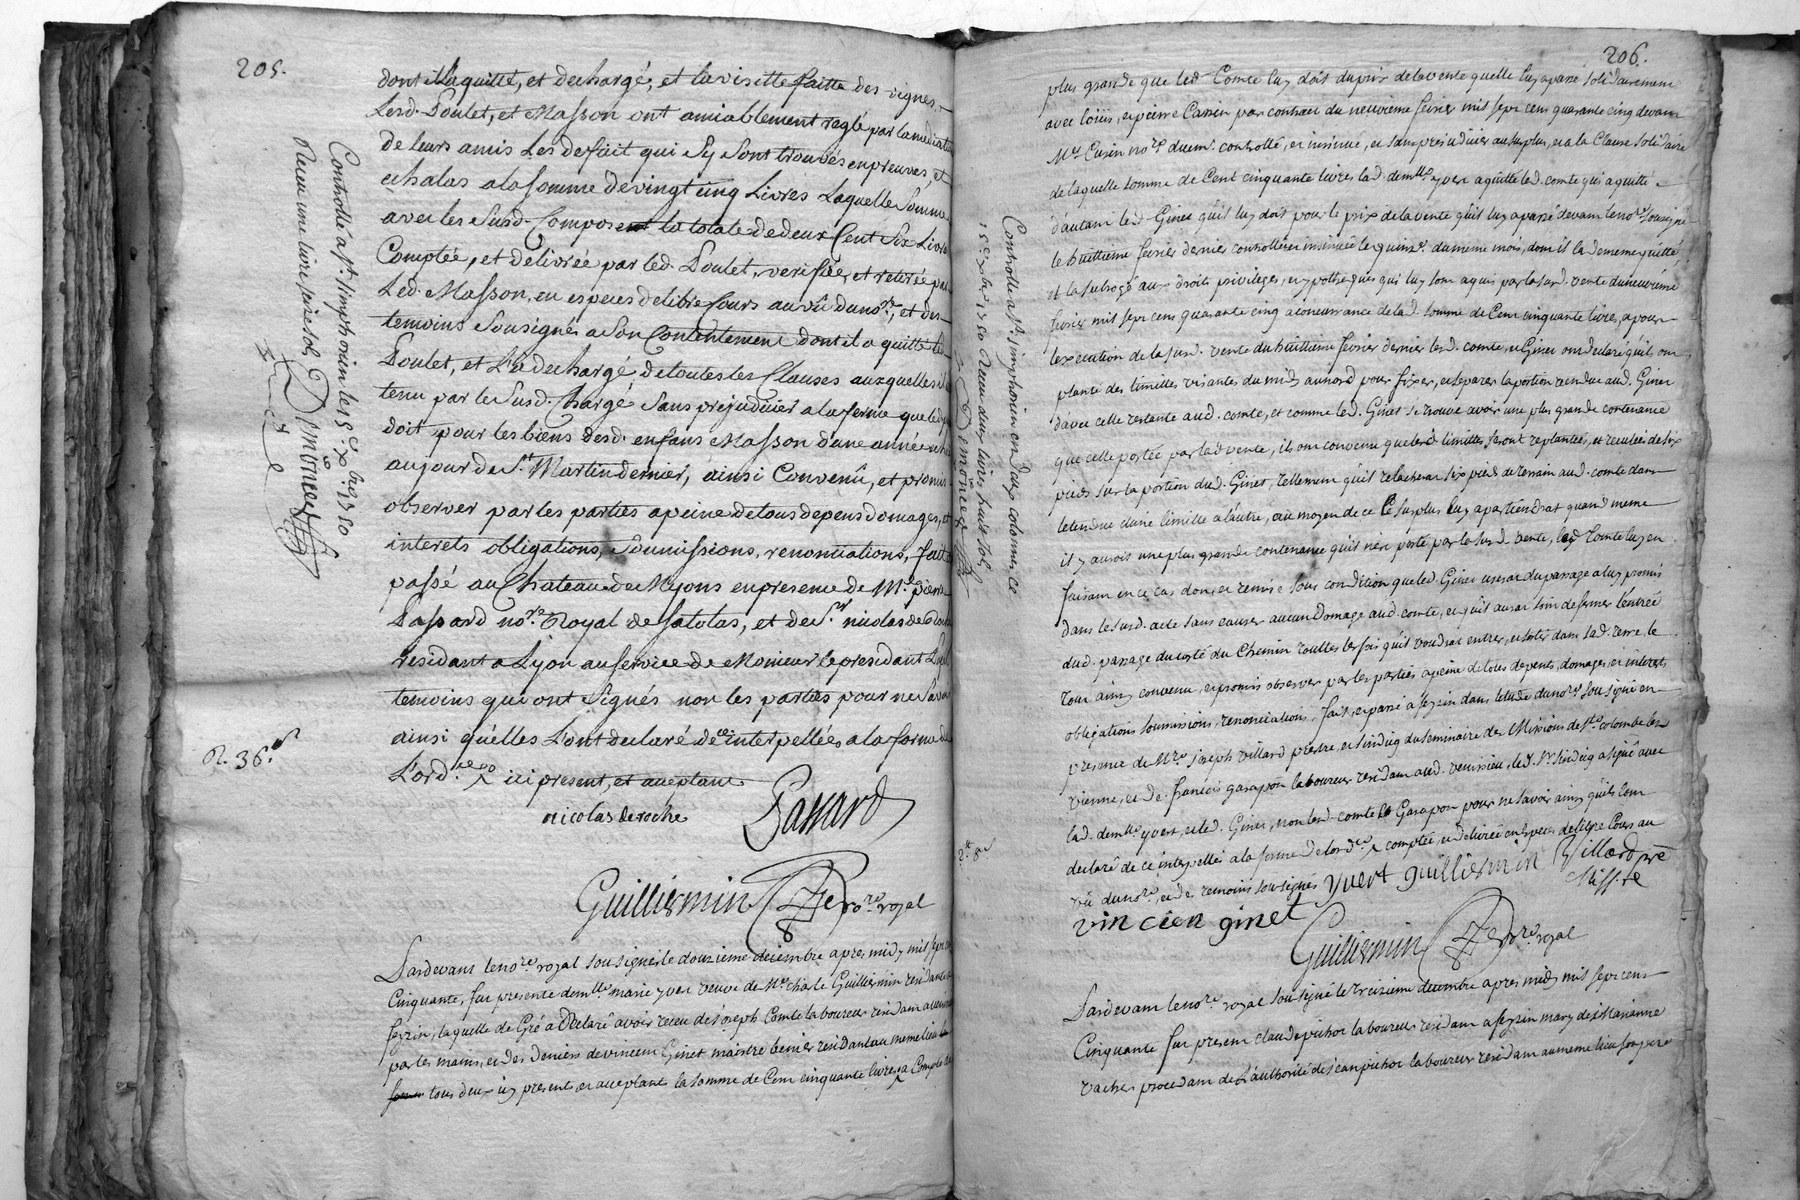 205.
dont il la quitté, et dechargé, et la visitte faitte des vignes
Lesd. Poulet, et Masson ont amiablement reglé par la mediation
de leurs amis les defait qui sy sont trouvés en preuves, et
echalas a la somme de vingt cinq Livres Laquelle somme
avec les susd. Composent la totale de deux Cent six Livres
Comptée, et delivrée par led. Poulet, verifiée, et retirée par
Led. Masson, en especes de libre Cours au vû du nore, et des
temoins sousignés a son Contentement dont il a quitté led.
Poulet, et l'a dechargé de toutes les Clauses auxquelles il
tenu par le susd. Chargé sans prejudicier a la ferme que led.
doit pour les biens desd. enfans Masson d'une année
au jour de St. Martin dernier, ainsi Convenû, et promis
observer par les parties a peine de tous depens domages, et
interets obligations, soumissions, renonciations, fait et
passé au Chateau de Meyons en presence de Me. pierre
Passard nore. Royal de Satolas, et de Sr. nicolas de Roche
residant a Lyon au service de Monsieur le president
temoins qui ont signés non les parties pour ne savoir
ainsi qu'elles l'ont declaré de ce interpellées a la forme de
L'ord.ce ici present, et acceptant
nicolas de roche Passard
Guilliermin nore. royal
Controllé a St. simphorien le 15e. xbre 1750
Receu une livre seize sols Demoncee
R. 36s
Pardevant le nore royal sousigné le douzieme decembre apres midy mil sept cent
Cinquante, fut presente demlle marie yvert veuve de Me charle Guilliermin residante a
feyzin, laquelle de Gré a declaré avoir receu de Joseph Comte laboureur residant a venissieu
par les mains, et des deniers de vincent Ginet maistre residant au meme lieu
tous deux icy present, et acceptant la somme de Cent cinquante livres a Compte
206.
plus grande que led. Comte luy doit du prix de la vente quelle luy a passé solidairement
avec loüis, et pierre Cassin par contract du neuvieme fevrier mil sept cens quarante cinq devant
Me Cusin nore duemt. controllé, et insinué, et sans prejudicier au surplus, et a la Clause solidaire
de laquelle somme de Cent cinquante livres lad. demlle. yvert a quitté led. comte qui a quitté
d'autant led. Ginet qu'il luy doit pour le prix de la vente qu'il luy a passé devant le nore sousigné
le huittieme fevrier dernier controllée et insinuée le quinze du meme mois, dont il la de meme quitté
et la subrogé aux droits privileges, et ypotheques qui luy sont aquis par la susd. vente du neuvieme
fevrier mil sept cens quarante cinq a concurrance de lad. somme de Cent cinquante livres, a pour
l'execution de la susd. vente du huittieme fevrier dernier lesd. comte, et Ginet ont declaré qu'ils ont
planté des limittes visantes du midy au nord pour fixer, et separer la portion vendue aud. Ginet
d'avec celle restante aud. comte, et comme led. Ginet se trouve avoir une plus grande contenance
que celle portée par lad. vente, ils ont convenu que lesd. limittes seront replantées, et reculées de six
pieds sur la portion dud. Ginet, tellement qu'il relachera six pieds de terrain aud. comte dans
letendue d'une limitte a l'autre, au moyen de ce le surplus luy apartiendrat quand meme
il y auroit une plus grande contenance qu'il n'est porté par la susd. vente, led. Comte luy en
faisant en ce cas don, et remise sous condition que led. Ginet userat du passage a luy promis
dans le susd. acte sans causer aucun Domage aud. comte, et qu'il aurat soin de fermer l'entrée
dud. passage du costé du Chemin toutes les fois qu'il voudrat entrer, et sortir dans lad. terre, le
tout ainsy convenu, et promis observer par les parties a peine de tous depents, domages, et interets
obligations soumissions, renonciations, fait, et passé a feyzin dans l'etude du nore sousigné en
presence de Mre. joseph villard prestre, et sindiq du seminaire des Missions de Ste colombe les
vienne, et de francois garapon laboureur residant aud. venissieu, led. Sr. sindiq a signé avec
lad. demlle yvert, et led. Ginet, non led. comte et Garapon pour ne savoir ainsy qu'ils l'ont
declaré de ce interpellés a la forme de lord.ce comptée, et delivrée en especes de libre Cours au
vû du nore, et de temoins sousignés yvert guilliermin Villard pre
Missre
vincien ginet
Guilliermin nore. royal
Controllé a St. simphorien en deux colonnes, ce
15e xbre 1750 Receu deux livres huit sols
Demoncee
Pardevant le nore royal sousigné le treizieme decembre apres midy mil sept cens
Cinquante fut present claude pichot laboureur residant a feyzin mary de Marianne
vacher procedant de L'authorité de jean pichot laboureur residant au meme lieu son pere